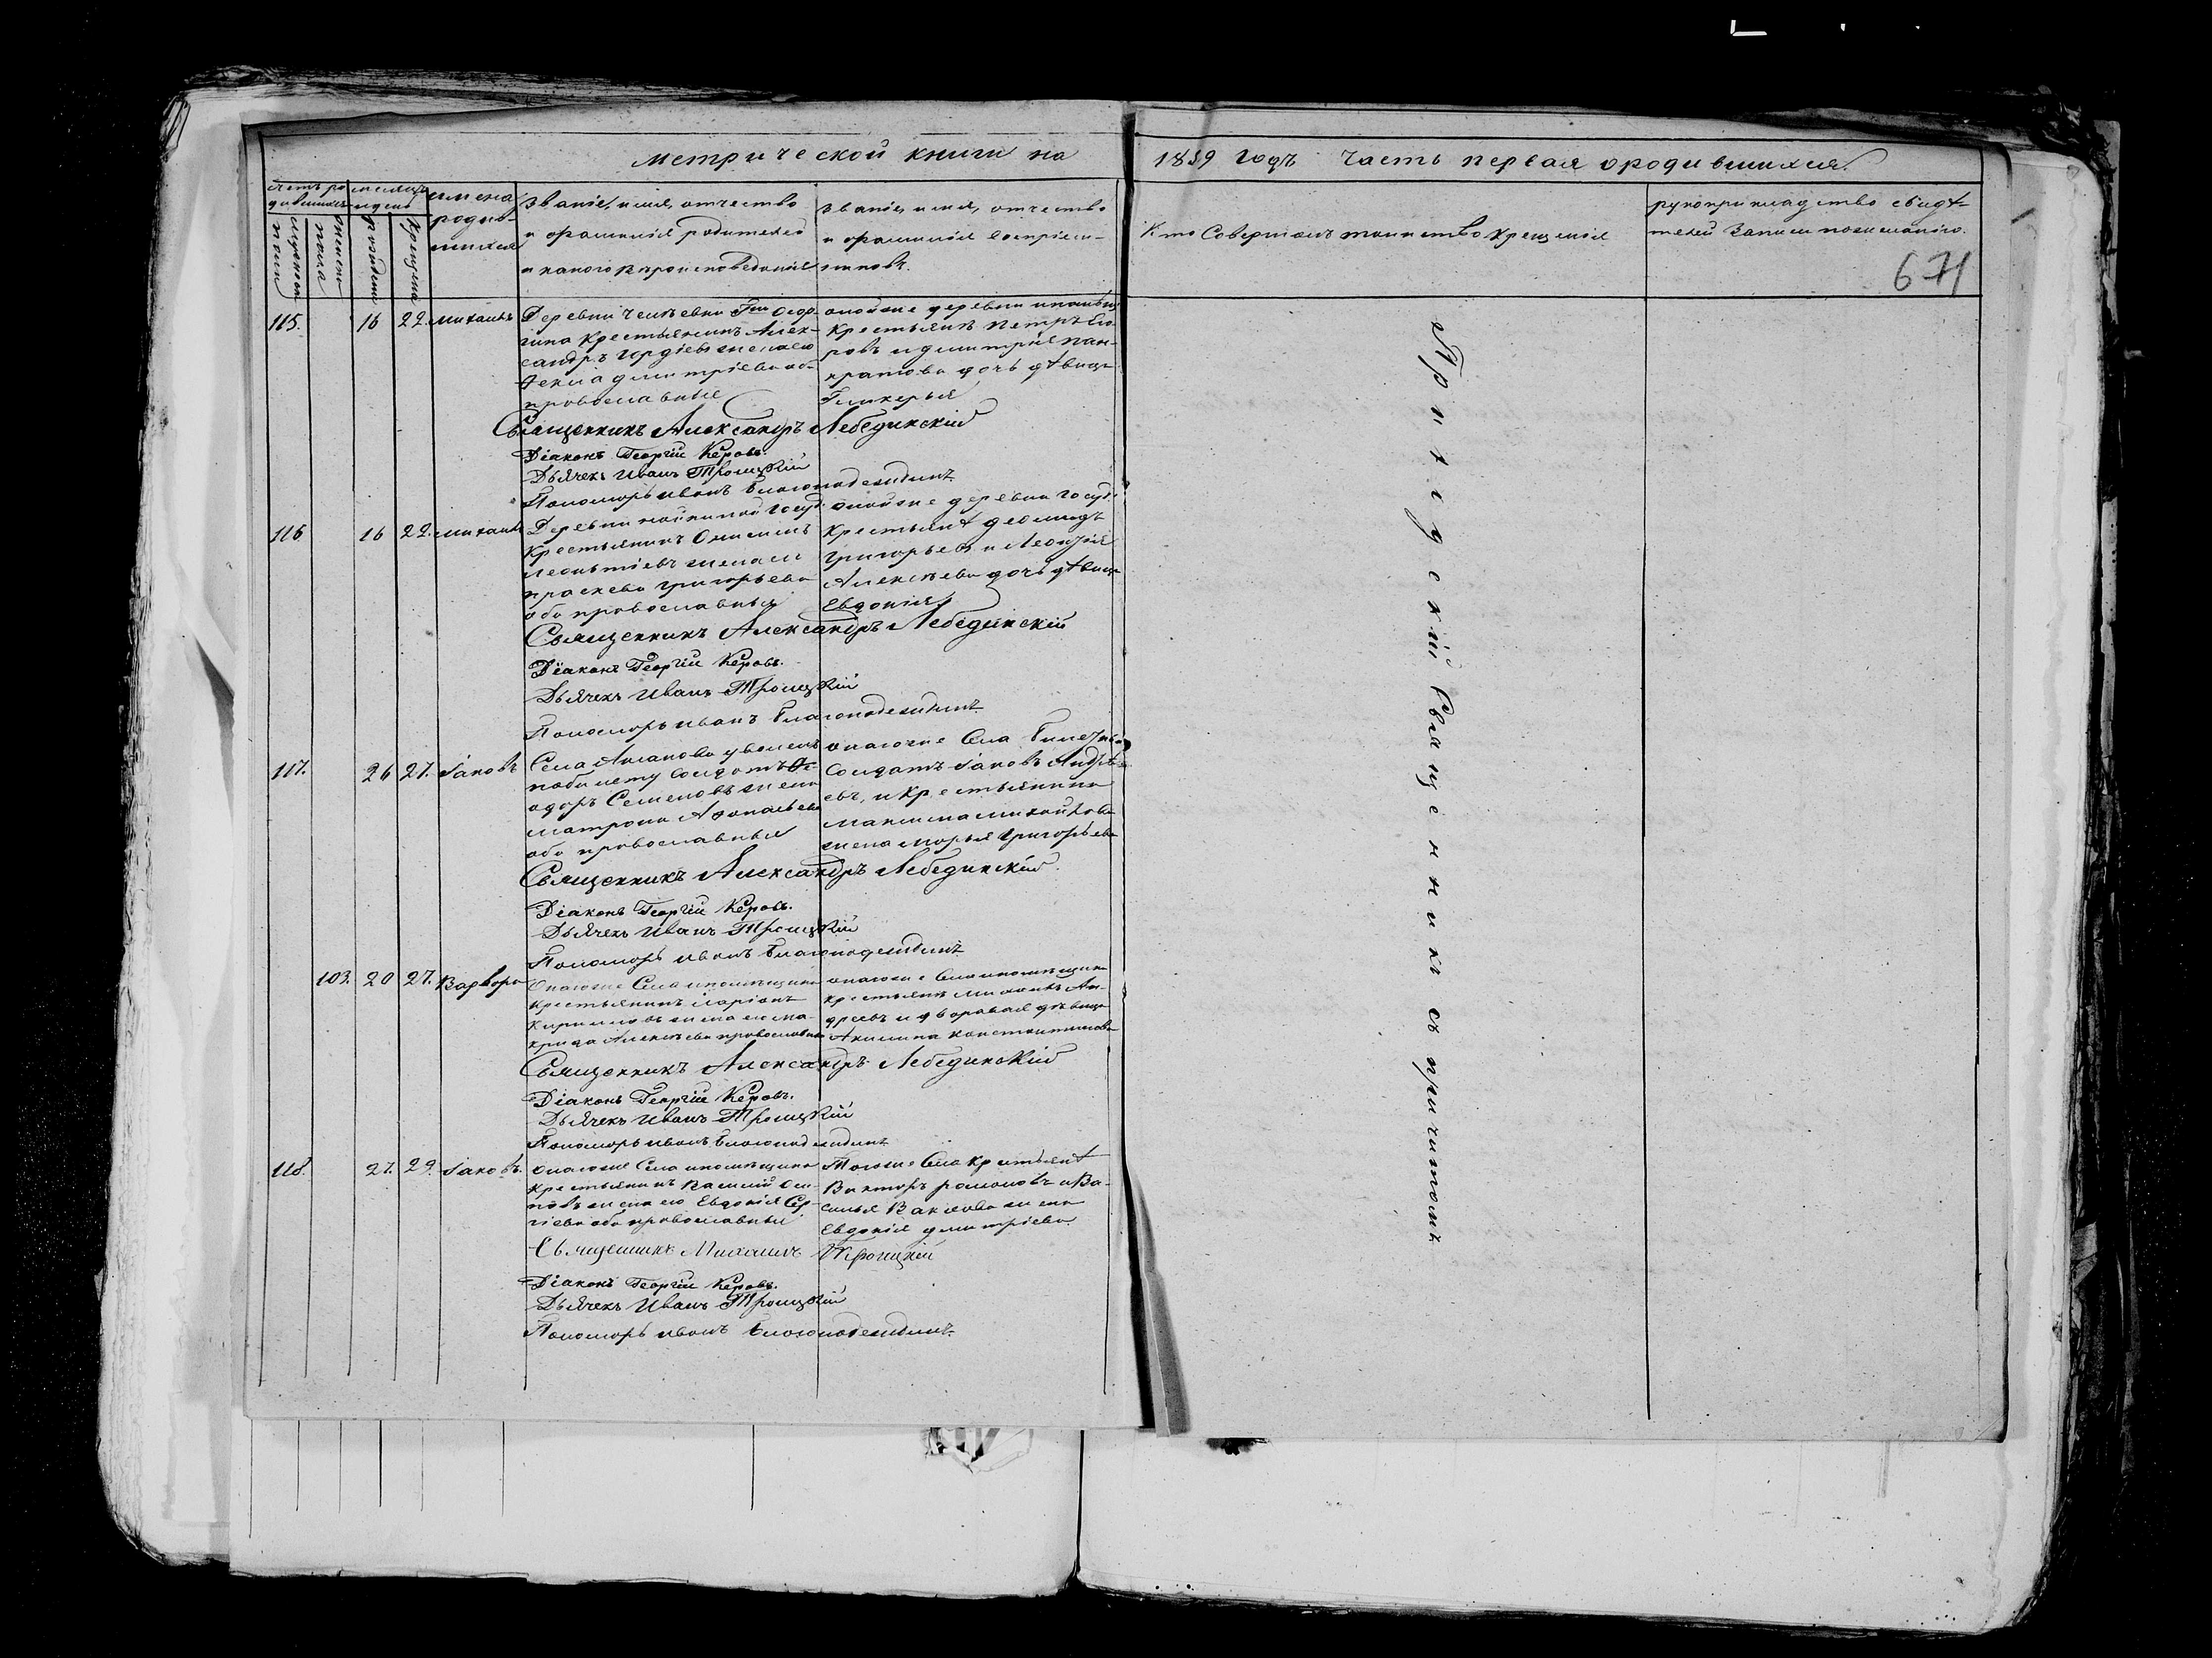 метрической книги на 1859 годъ часть первая о родившихся.
счетъ родившихся
мужеска пола
женска пола
месяцъ и день
рождения
крещения
имена родившихся
званіе, имя, отчество
и фамилія родителей
и какого вѣроисповеданія
званіе, имя, отчество
и фамилія воспріем-
никовъ.
Кто Совершалъ таинство крещенія
рукоприкладство свидѣ-
телей Записи по желанію.
671
115. 16 22. михаилъ
Деревни
гина Крестьянинъ Алек-
сандръ Гордѣевъ жена его
Фекла дмитріева об-
православные
оной же деревни
Крестьянъ Петръ Его-
ровъ и дмитрія пан-
кратова дочь дѣвица
Гликерья
Священникъ Александръ Лебединскій
Діаконъ Георгій Керовъ.
Дьячекъ Иванъ Троицкій
Пономорь иванъ Благонадеждинъ
116 16 22. михаилъ
Деревни
Крестьянинъ Онисимъ
леонтіевъ жена его
праскева григорьева
оба православныя
оной же деревни Госуд.
Крестьянъ деомидъ
Григорьевъ и Леонтія
Алексѣева дочь дѣвица
Евдокія
Священникъ Александръ Лебединскій
Діаконъ Георгій Керовъ.
Дьячекъ Иванъ Троицкій
Пономорь иванъ Благонадеждинъ
117. 26 27. Іаковъ
Села Аманова уволенъ
по билету Солдатъ Фе-
одоръ Семеновъ жена
матрона
оба православныя
онаго же Села Билетный
Солдатъ Іаковъ Андрѣ-
евъ, и Крестьянина
максима михайлова
жена марья Григорьева
Священникъ Александръ Лебединскій.
Діаконъ Георгій Керовъ.
Дьячекъ Иванъ Троицкій
Пономорь иванъ Благонадеждинъ
103. 20 27. Варвара
Онаго же Села помѣщика
крестьянинъ Иларіонъ
Кириловъ жена его ма-
крида Алексѣева православныя
онаго же Села помѣщика
крестьянъ михаилъ Ан-
дреевъ и дворовая дѣвица
Акилина константинова
Священникъ Александръ Лебединскій
Діаконъ Георгій Керовъ.
Дьячекъ Иванъ Троицкій
Пономорь иванъ Благонадеждинъ
118. 27. 29. Іаковъ.
онаго же Села помѣщика
крестьянинъ Василій Оси-
повъ жена его Евдокія Сер-
гіева оба православныи
Того же Села Крестьянъ
Викторъ романовъ и Ва-
силья жена
Евдокія дмитріева
Священникъ Михаилъ Троицкій
Діаконъ Георгій Керовъ.
Дьячекъ Иванъ Троицкій
Пономорь иванъ Благонадеждинъ
Приходскій Священникъ съ причитомъ